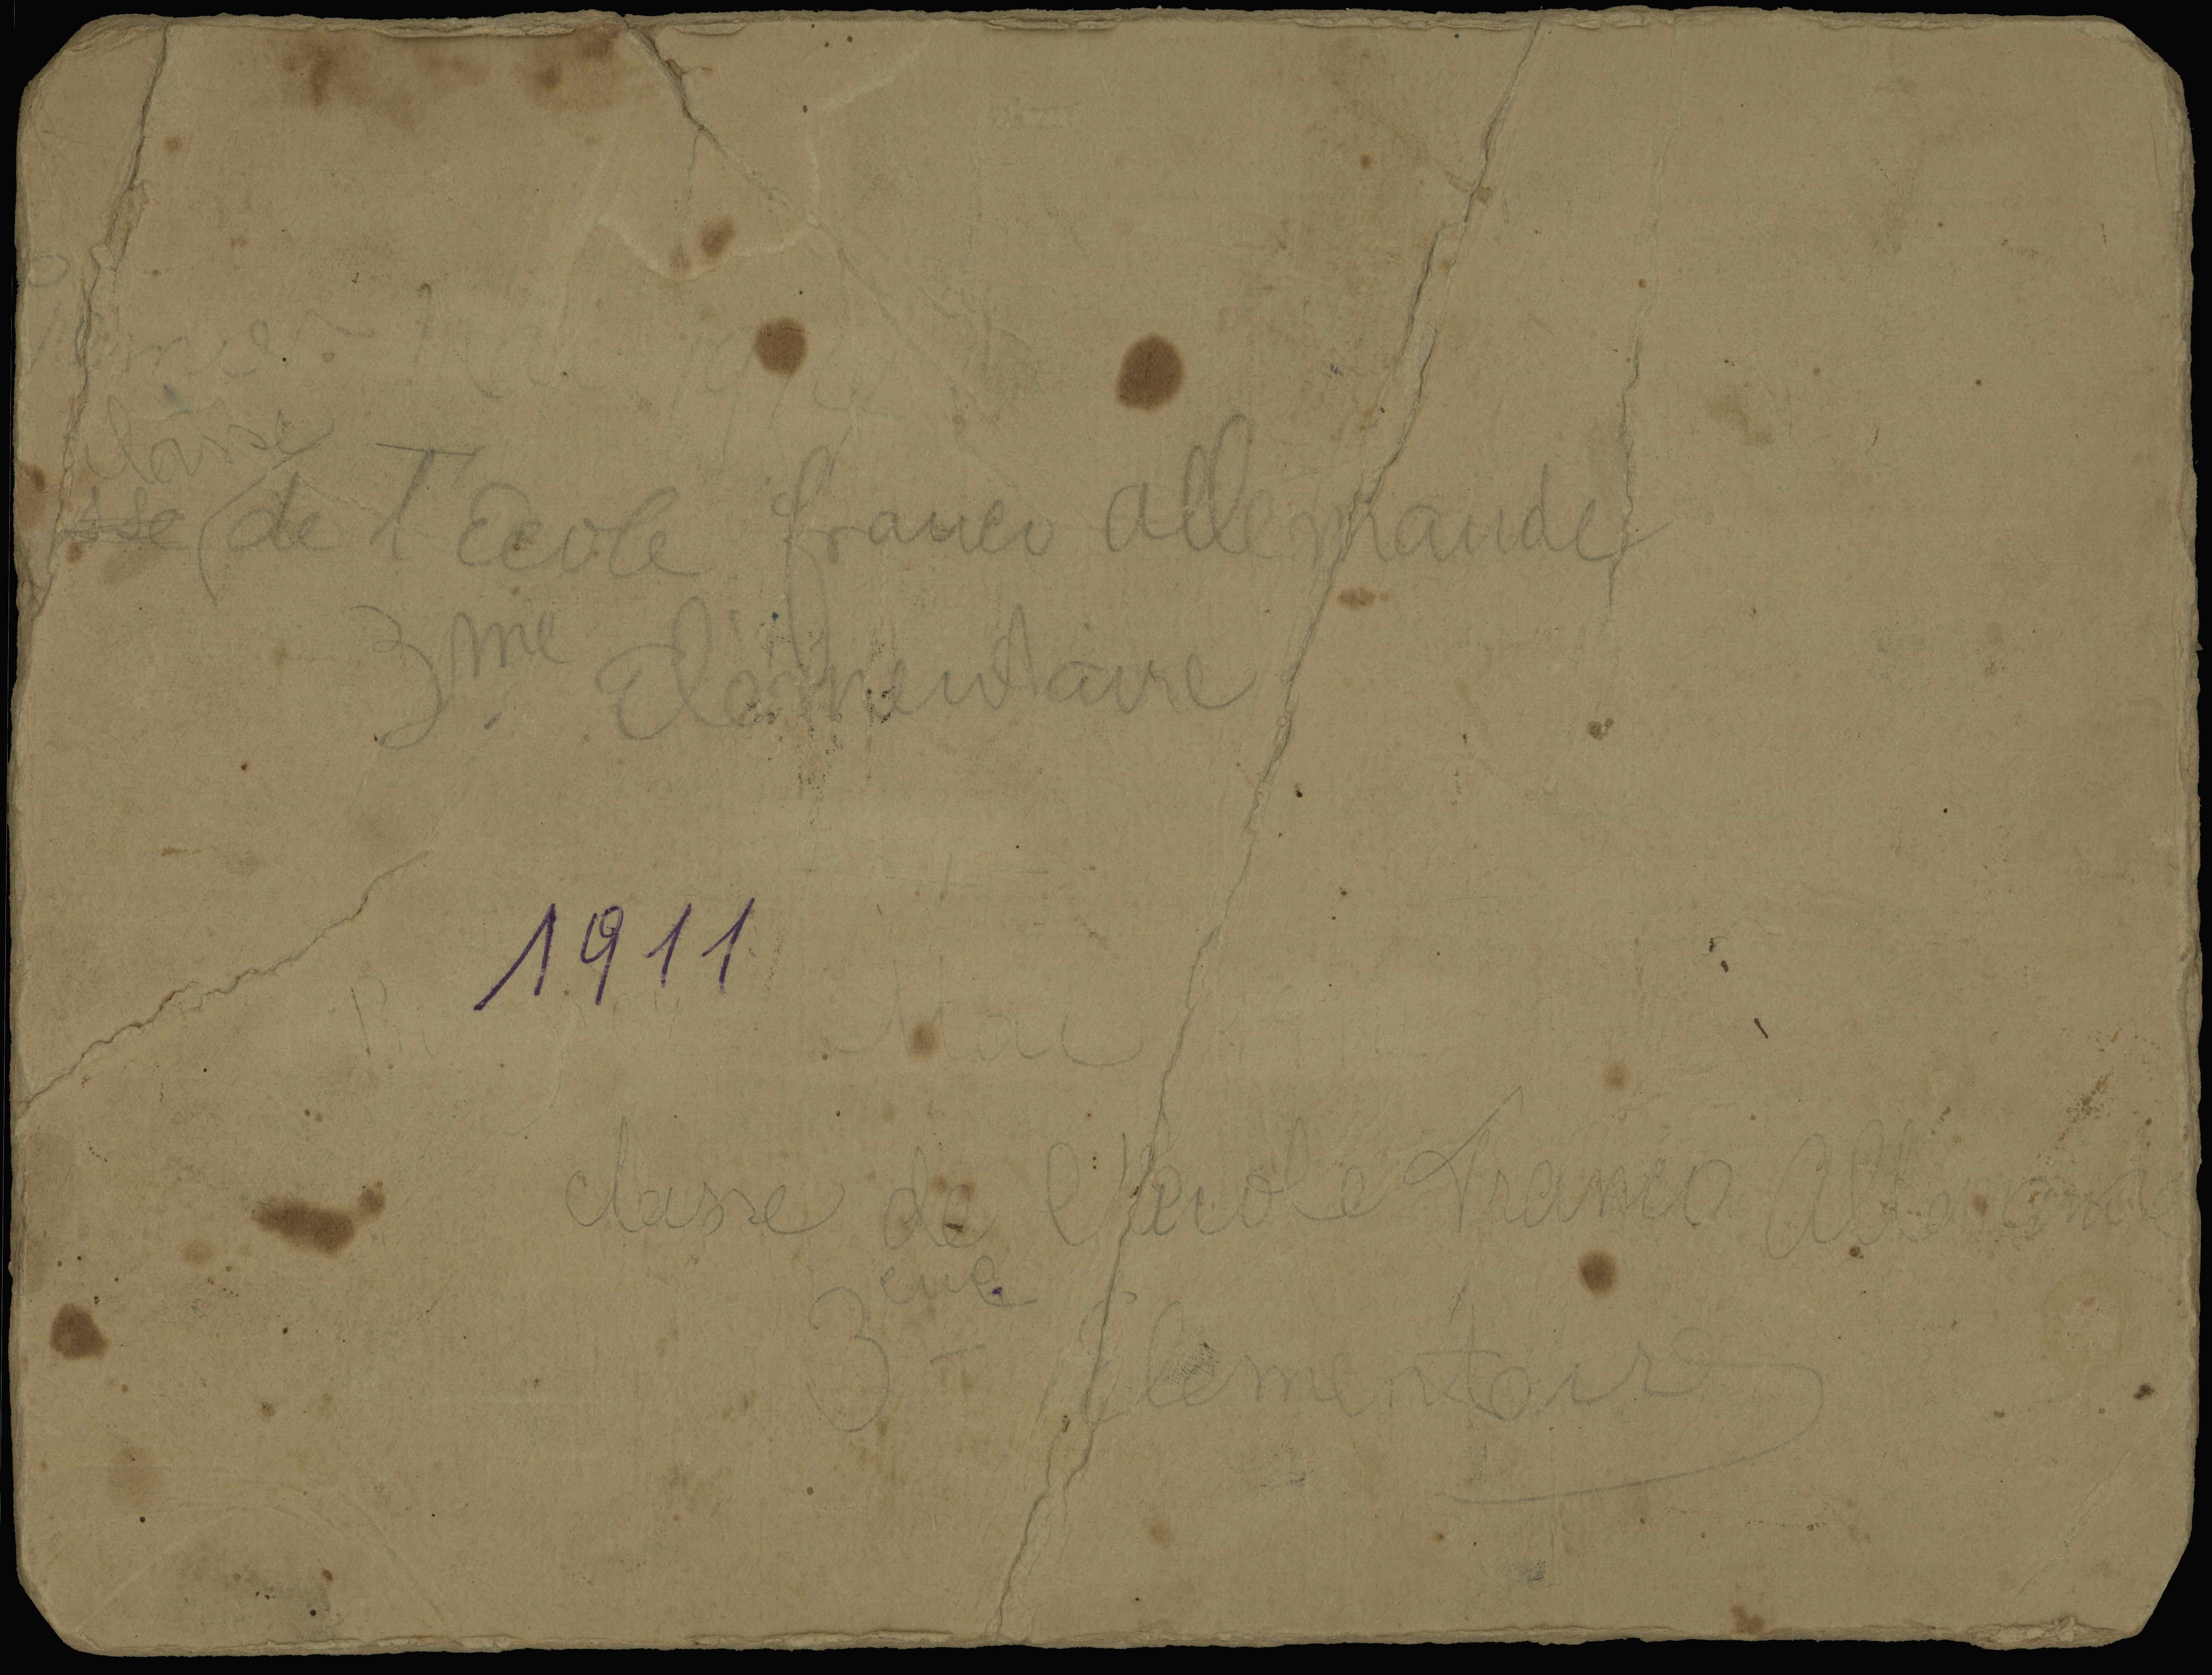 Mai
classe
sse de l'Ecole franco allemande
3me Elementaire
1911
Mai
classe de l'ecole Franco Allemande
3eme Elementaire